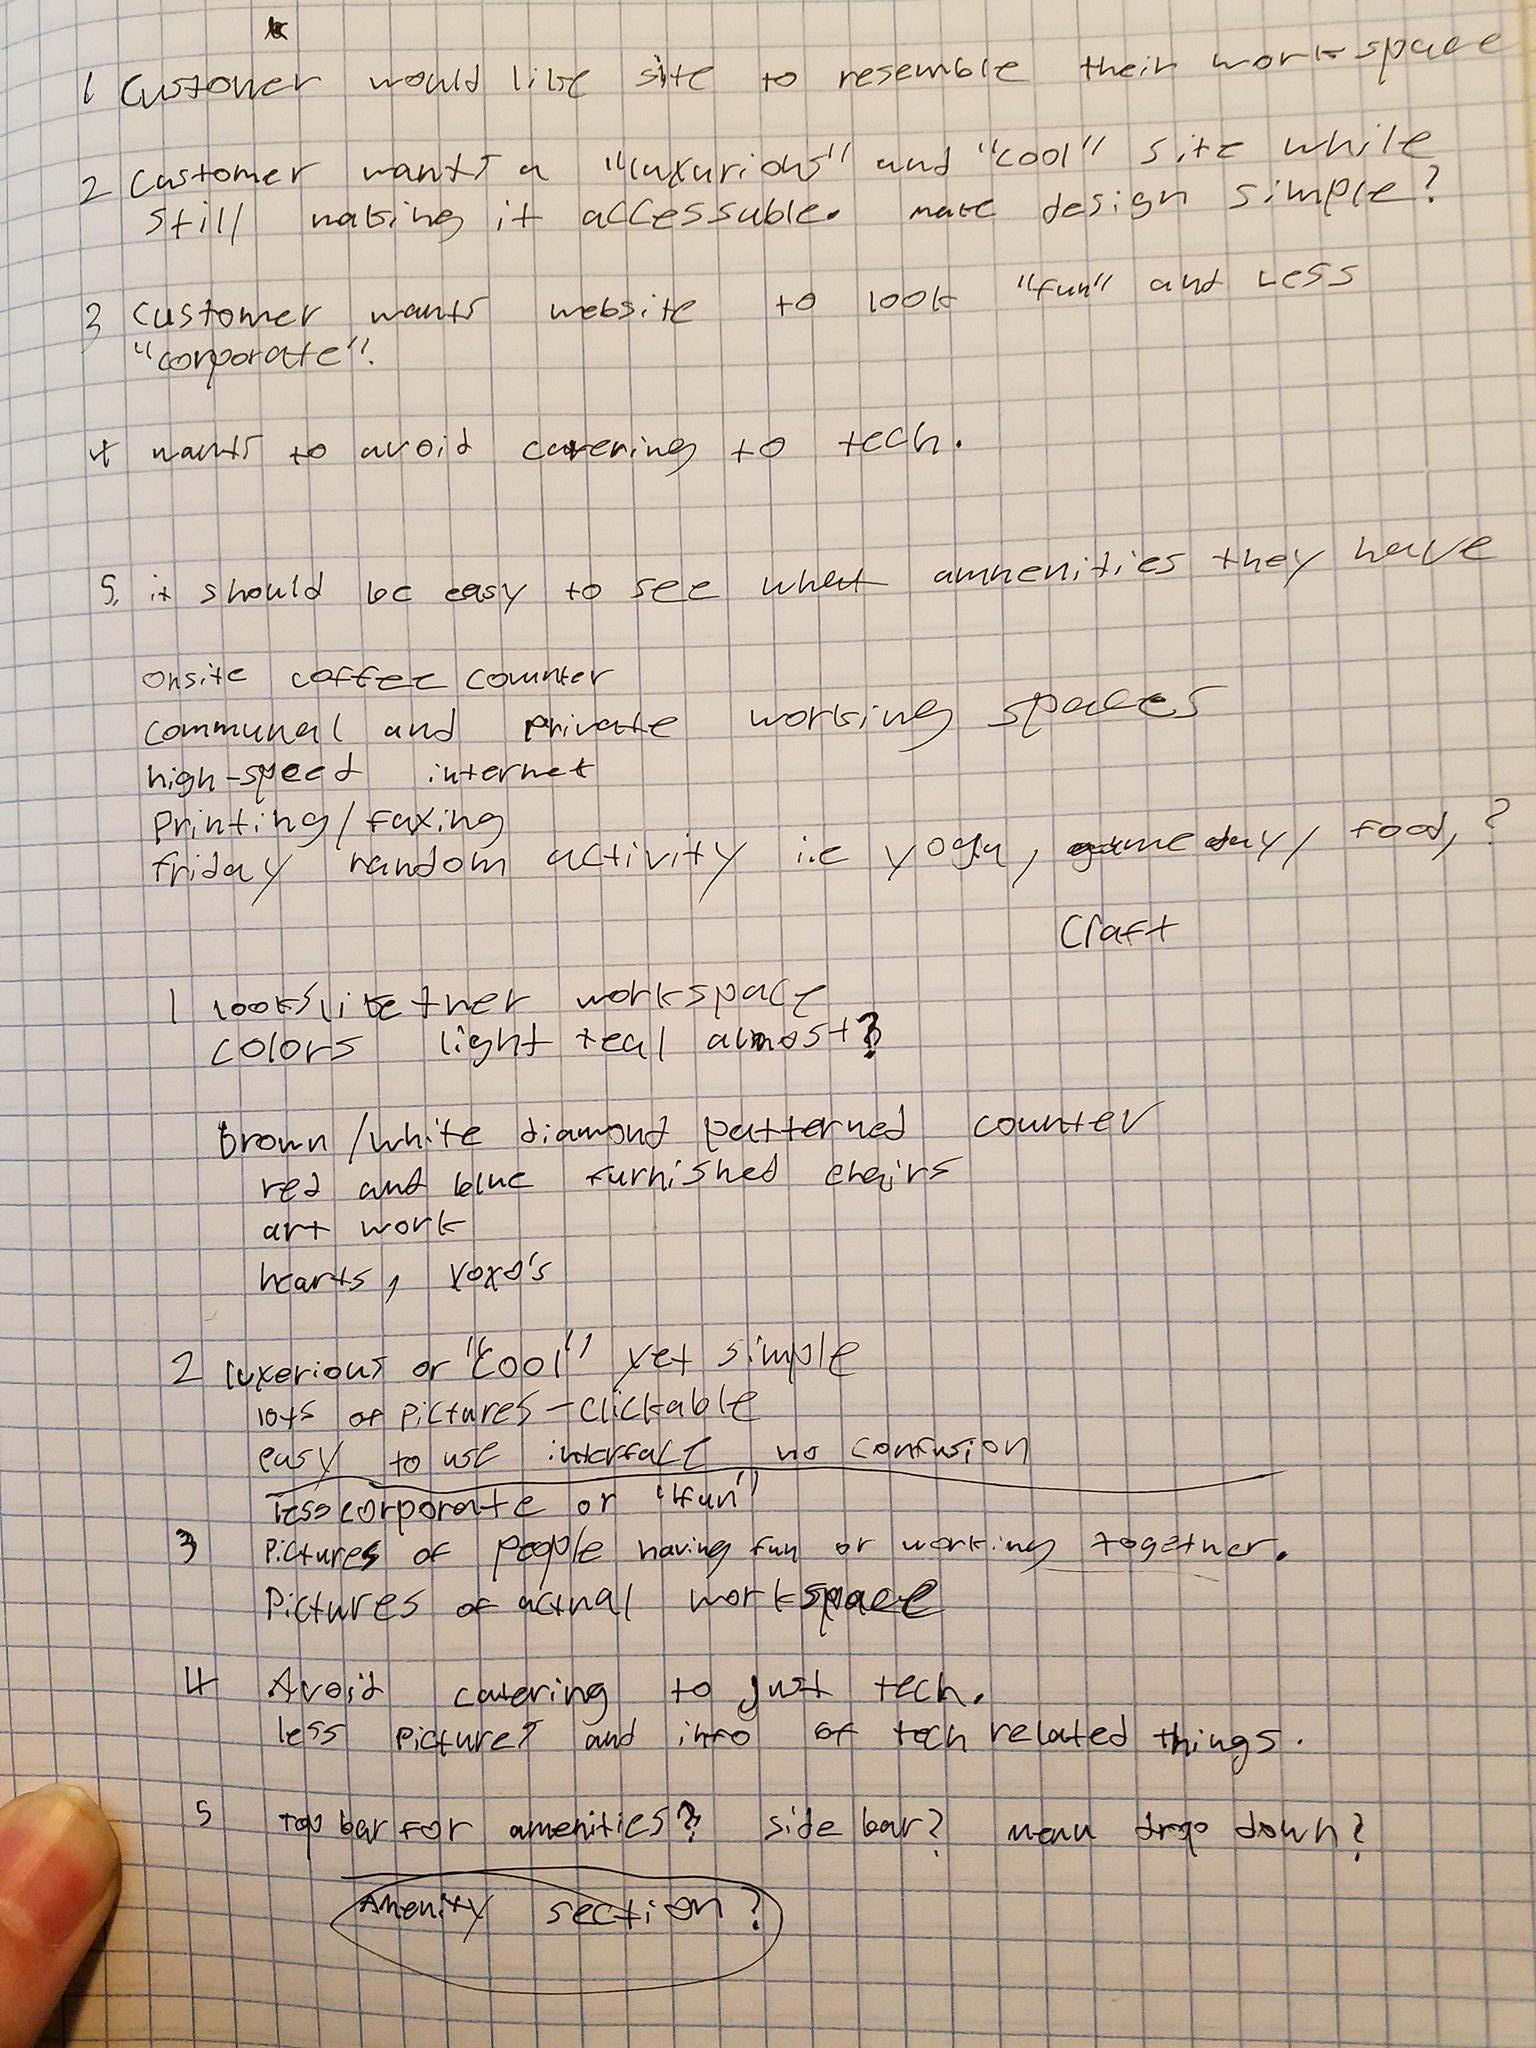 1 Customer would like site to resemble their workspace
2 Customer wants a "luxurious" and "cool" site while
still making it accessuble. make design simple?
3 Customer wants website to look "fun" and Less
"corporate".
4 wants to avoid catering to tech.
5. it should be easy to see what amnenities they have
onsite coffee counter
communal and private working spaces
high-speed internet
Printing/faxing
friday random activity i.e yoga, game day, food, ?
Craft
1 looks like ther workspace
colors light teal almost?
brown/white diamond patterned counter
red and blue furnished chairs
art work
hearts, xoxo's
2 luxerious or "cool" yet simple
lots of pictures - clickable
easy to use interface no confusion
less corporate or "fun"
3 Pictures of people having fun or working together.
Pictures of actual workspace
4 Avoid catering to just tech.
less pictures and info of tech related things.
5 Top bar for amenities? side bar? menu drop down?
Amenity section?